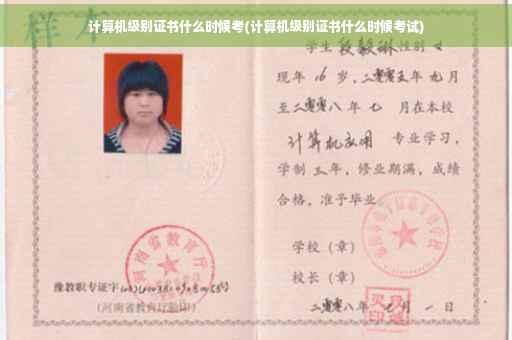 计算机级别证书什么时候考(计算机级别证书什么时候考试)
样本
学生段毅琳性别女
现年16岁,二零零五年九月
至二零零八年七月在本校
计算机应用 专业学习,
学制三年,修业期满,成绩
合格,准予毕业。
学校(章)
校长(章)
二零零八年七月一日
河南省教育厅
豫教职专证字
(河南省教育厅验印)